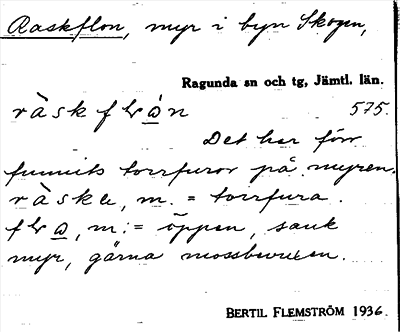 Raskflon, myr i byn Skogen,
Ragunda sn och tg, Jämtl. län.
ràskflo̲n 575.
Det har förr
funnits torrfuror på myren.
ràske, m. = torrfura.
flo̲, m. = öppen, sank
myr, gärna mossbevuxen.
BERTIL FLEMSTRÖM 1936.